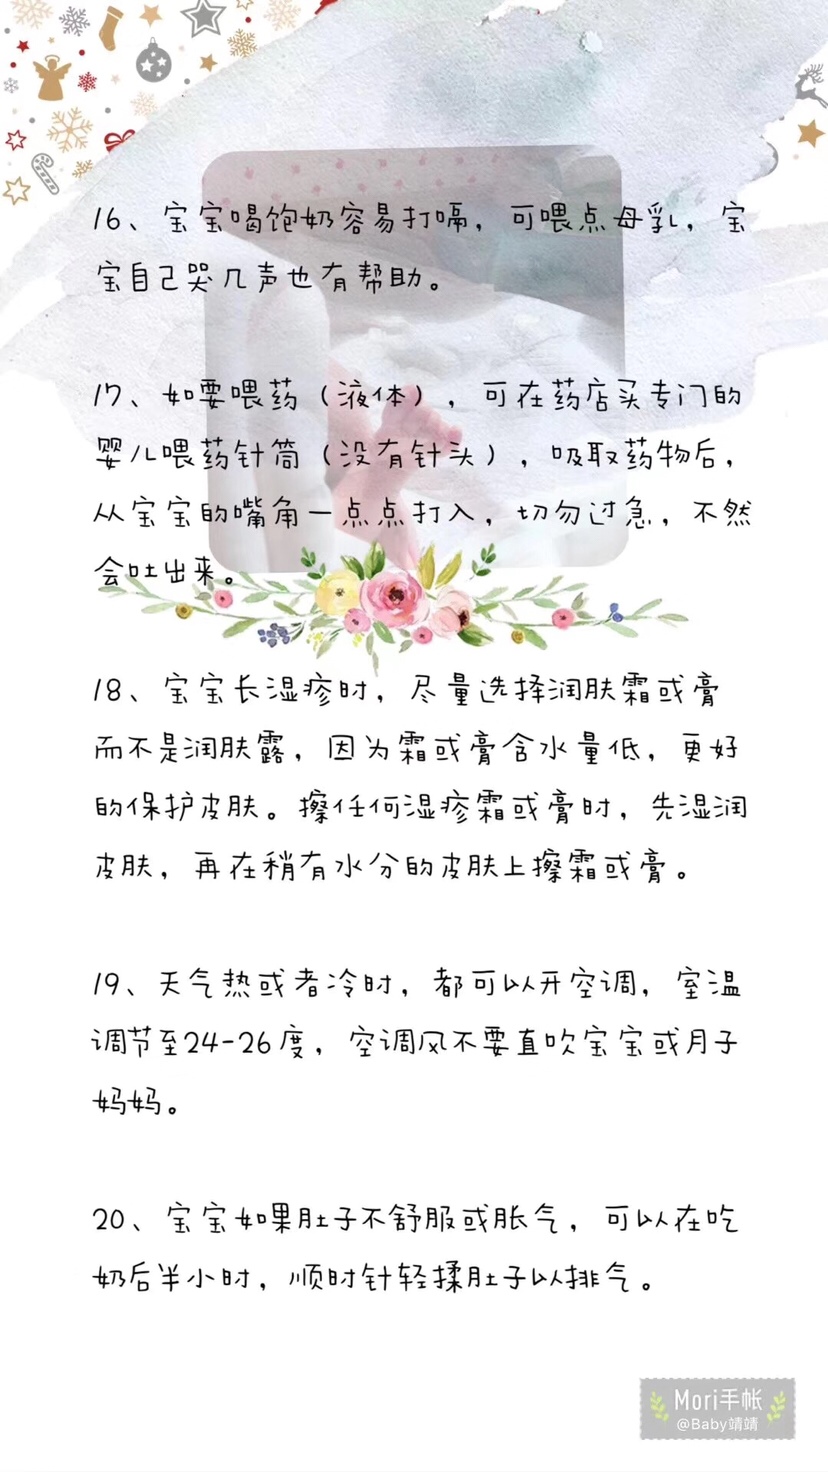 16、宝宝喝饱奶容易打嗝，可喂点母乳，宝
宝自己哭几声也有帮助。
17、如要喂药（液体），可在药店买专门的
婴儿喂药针筒（没有针头），吸取药物后，
从宝宝的嘴角一点点打入，切勿过急，不然
会吐出来。
18、宝宝长湿疹时，尽量选择润肤霜或膏
而不是润肤露，因为霜或膏含水量低，更好
的保护皮肤。擦任何湿疹霜或膏时，先湿润
皮肤，再在稍有水分的皮肤上擦霜或膏。
19、天气热或者冷时，都可以开空调，室温
调节至24-26度，空调风不要直吹宝宝或月子
妈妈。
20、宝宝如果肚子不舒服或胀气，可以在吃
奶后半小时，顺时针轻揉肚子以排气。
Mori手帐
@Baby靖靖